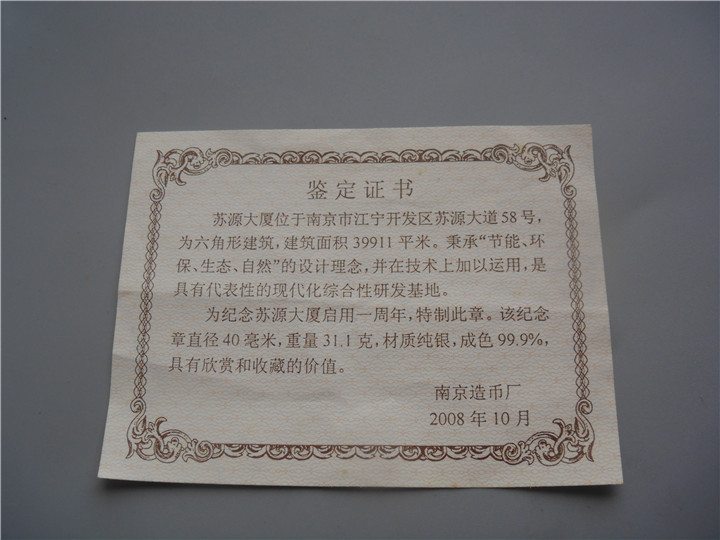 鉴定证书
苏源大厦位于南京市江宁开发区苏源大道58号，
为六角形建筑，建筑面积39911平米。秉承“节能、环
保、生态、自然”的设计理念，并在技术上加以运用，是
具有代表性的现代化综合性研发基地。
为纪念苏源大厦启用一周年，特制此章。该纪念
章直径40毫米，重量31.1克，材质纯银，成色99.9%，
具有欣赏和收藏的价值。
南京造币厂
2008年10月